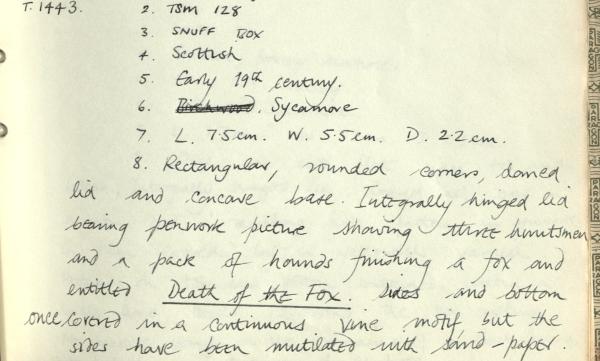 T.1443. 2. TSM 128
3. SNUFF BOX
4. Scottish
5. Early 19th century.
6. Birchwood. Sycamore
7. L. 7.5cm. W. 5.5cm. D. 2.2cm.
8. Rectangular, rounded corners, domed
lid and concave base. Integrally hinged lid
bearing penwork picture showing three huntsmen
and a pack of hounds finishing a fox and
entitled Death of the Fox. Sides and bottom
once covered in a continuous vine motif, but the
sides have been mutilated with sand-paper.
PARAGON
PARAGON
PARAGON
PARAGON